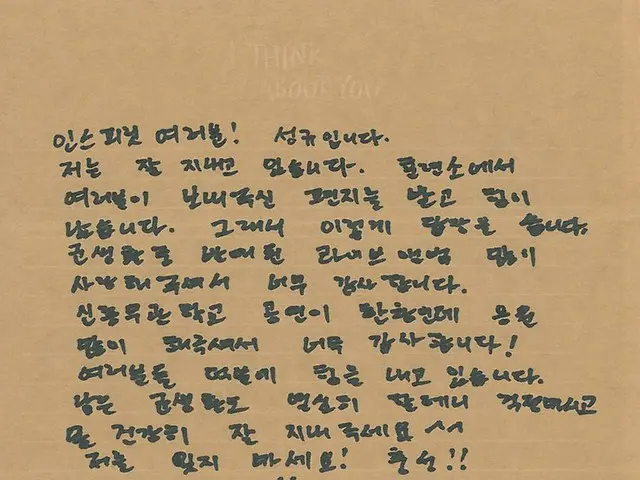 I THINK
ABOUT YOU
인스피릿 여러분! 성규입니다.
저는 잘 지내고 있습니다. 훈련소에서
여러분이 보내주신 편지를 받고 힘이
났습니다. 그래서 이렇게 답장을 씁니다.
군생활중 발매된 라이브 앨범 많이
사랑해주셔서 너무 감사합니다.
신흥무관학교 공연이 한창인데 응원
많이 해주셔서 너무 감사합니다!
여러분들 덕분에 힘을 내고 있습니다.
남은 군생활도 열심히 할테니 걱정마시고
몸 건강히 잘 지내주세요 ^^
저를 잊지 마세요! 충성!!